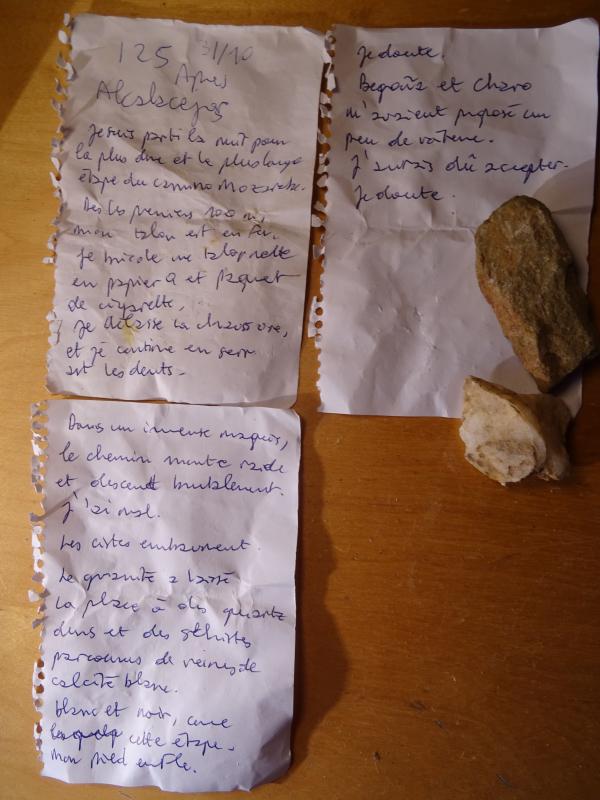 125 31/10
Après
Alcaracejos
Je suis parti la nuit pour
la plus dure et la plus longue
étape du camino Mozarabe.
Dès les premiers 100 m,
mon talon est en feu.
Je bricole une talonnette
en papier Q et paquet
de cigarette,
Je délasse la chaussure,
et je continue en serr
ant les dents.
Dans un immense maquis,
le chemin monte raide
et descend brutalement.
J'ai mal.
Les cistes embaument.
Le granite a laissé
la place à des quartz
durs et des schistes
parcourus de veines de
calcite blanc.
blanc et noir, comme
cette étape.
mon pied enfle.
Je doute.
Begoña et Charo
m'avaient proposé un
peu de voiture.
J'aurais dû accepter.
Je doute.